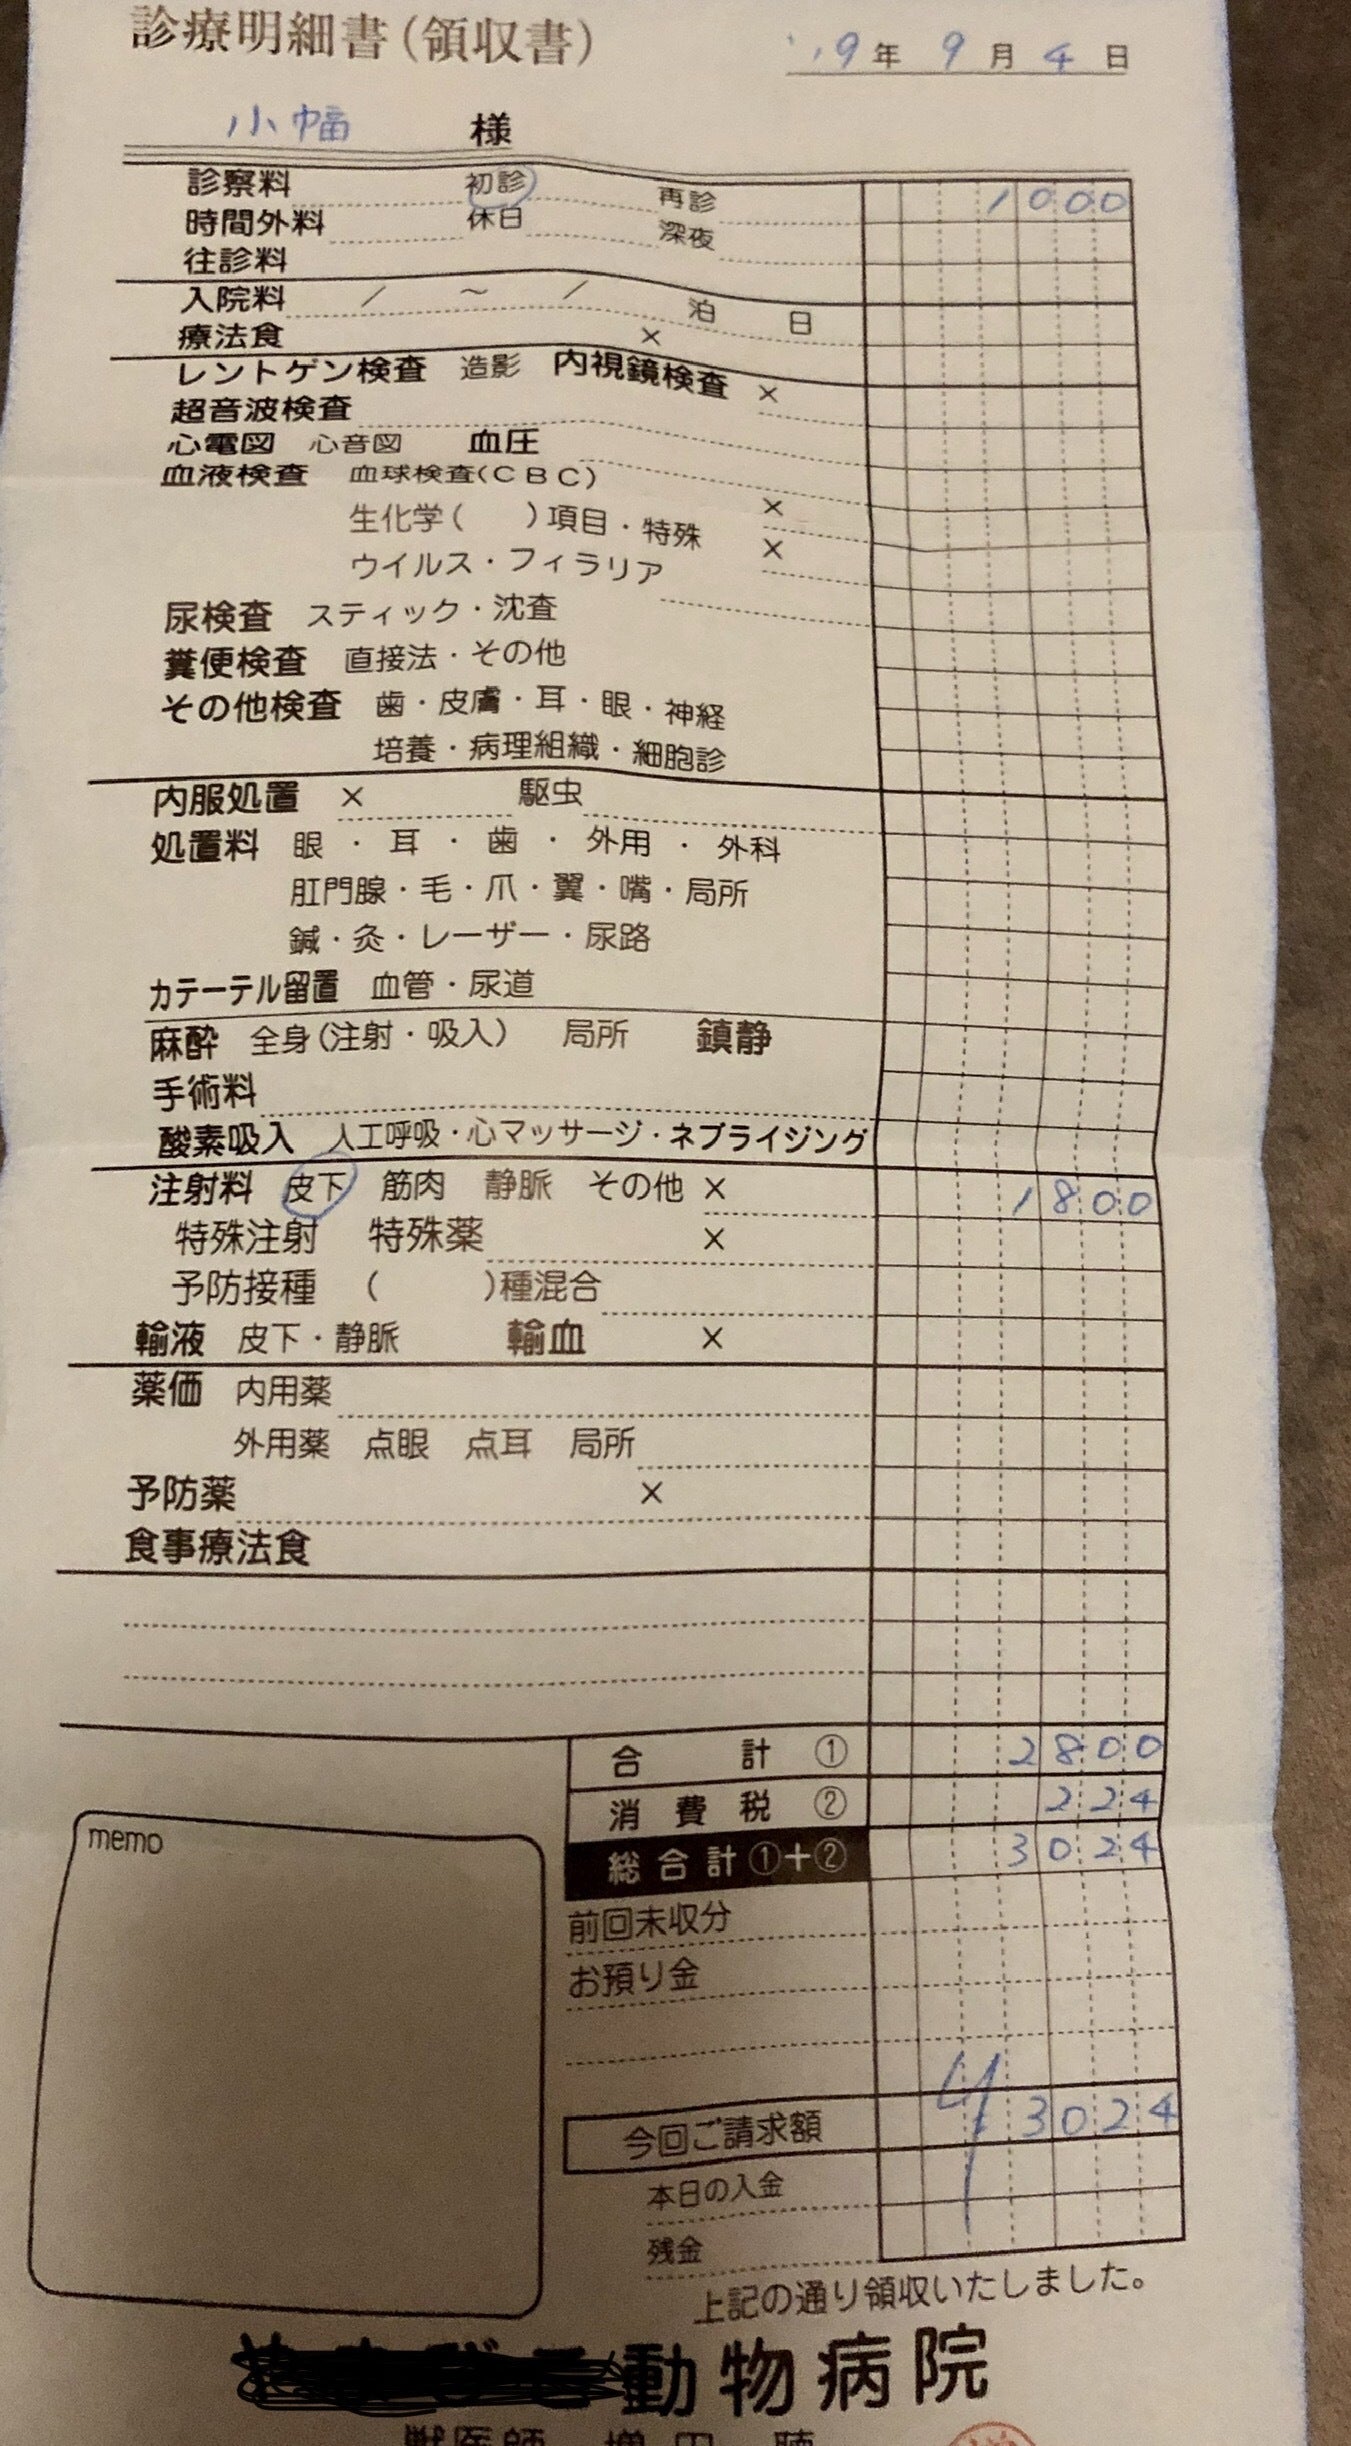 診療明細書(領収書)
'19年 9月 4日
小幡 様
診察料 初診 再診 1000
時間外料 休日 深夜
往診料
入院料 / ～ / 泊 日
療法食 ×
レントゲン検査 造影 内視鏡検査 ×
超音波検査
心電図 心音図 血圧
血液検査 血球検査(CBC)
生化学( )項目・特殊 ×
ウイルス・フィラリア ×
尿検査 スティック・沈査
糞便検査 直接法・その他
その他検査 歯・皮膚・耳・眼・神経
培養・病理組織・細胞診
内服処置 × 駆虫
処置料 眼・耳・歯・外用・外科
肛門腺・毛・爪・翼・嘴・局所
鍼・灸・レーザー・尿路
カテーテル留置 血管・尿道
麻酔 全身(注射・吸入) 局所 鎮静
手術料
酸素吸入 人工呼吸・心マッサージ・ネブライジング
注射料 皮下 筋肉 静脈 その他 × 1800
特殊注射 特殊薬 ×
予防接種 ( )種混合
輸液 皮下・静脈 輸血 ×
薬価 内用薬
外用薬 点眼 点耳 局所
予防薬 ×
食事療法食
合計① 2800
消費税② 224
総合計①+② 3024
memo
前回未収分
お預り金
今回ご請求額 3024
本日の入金
残金
上記の通り領収いたしました。
動物病院
獣医師 増田 聴